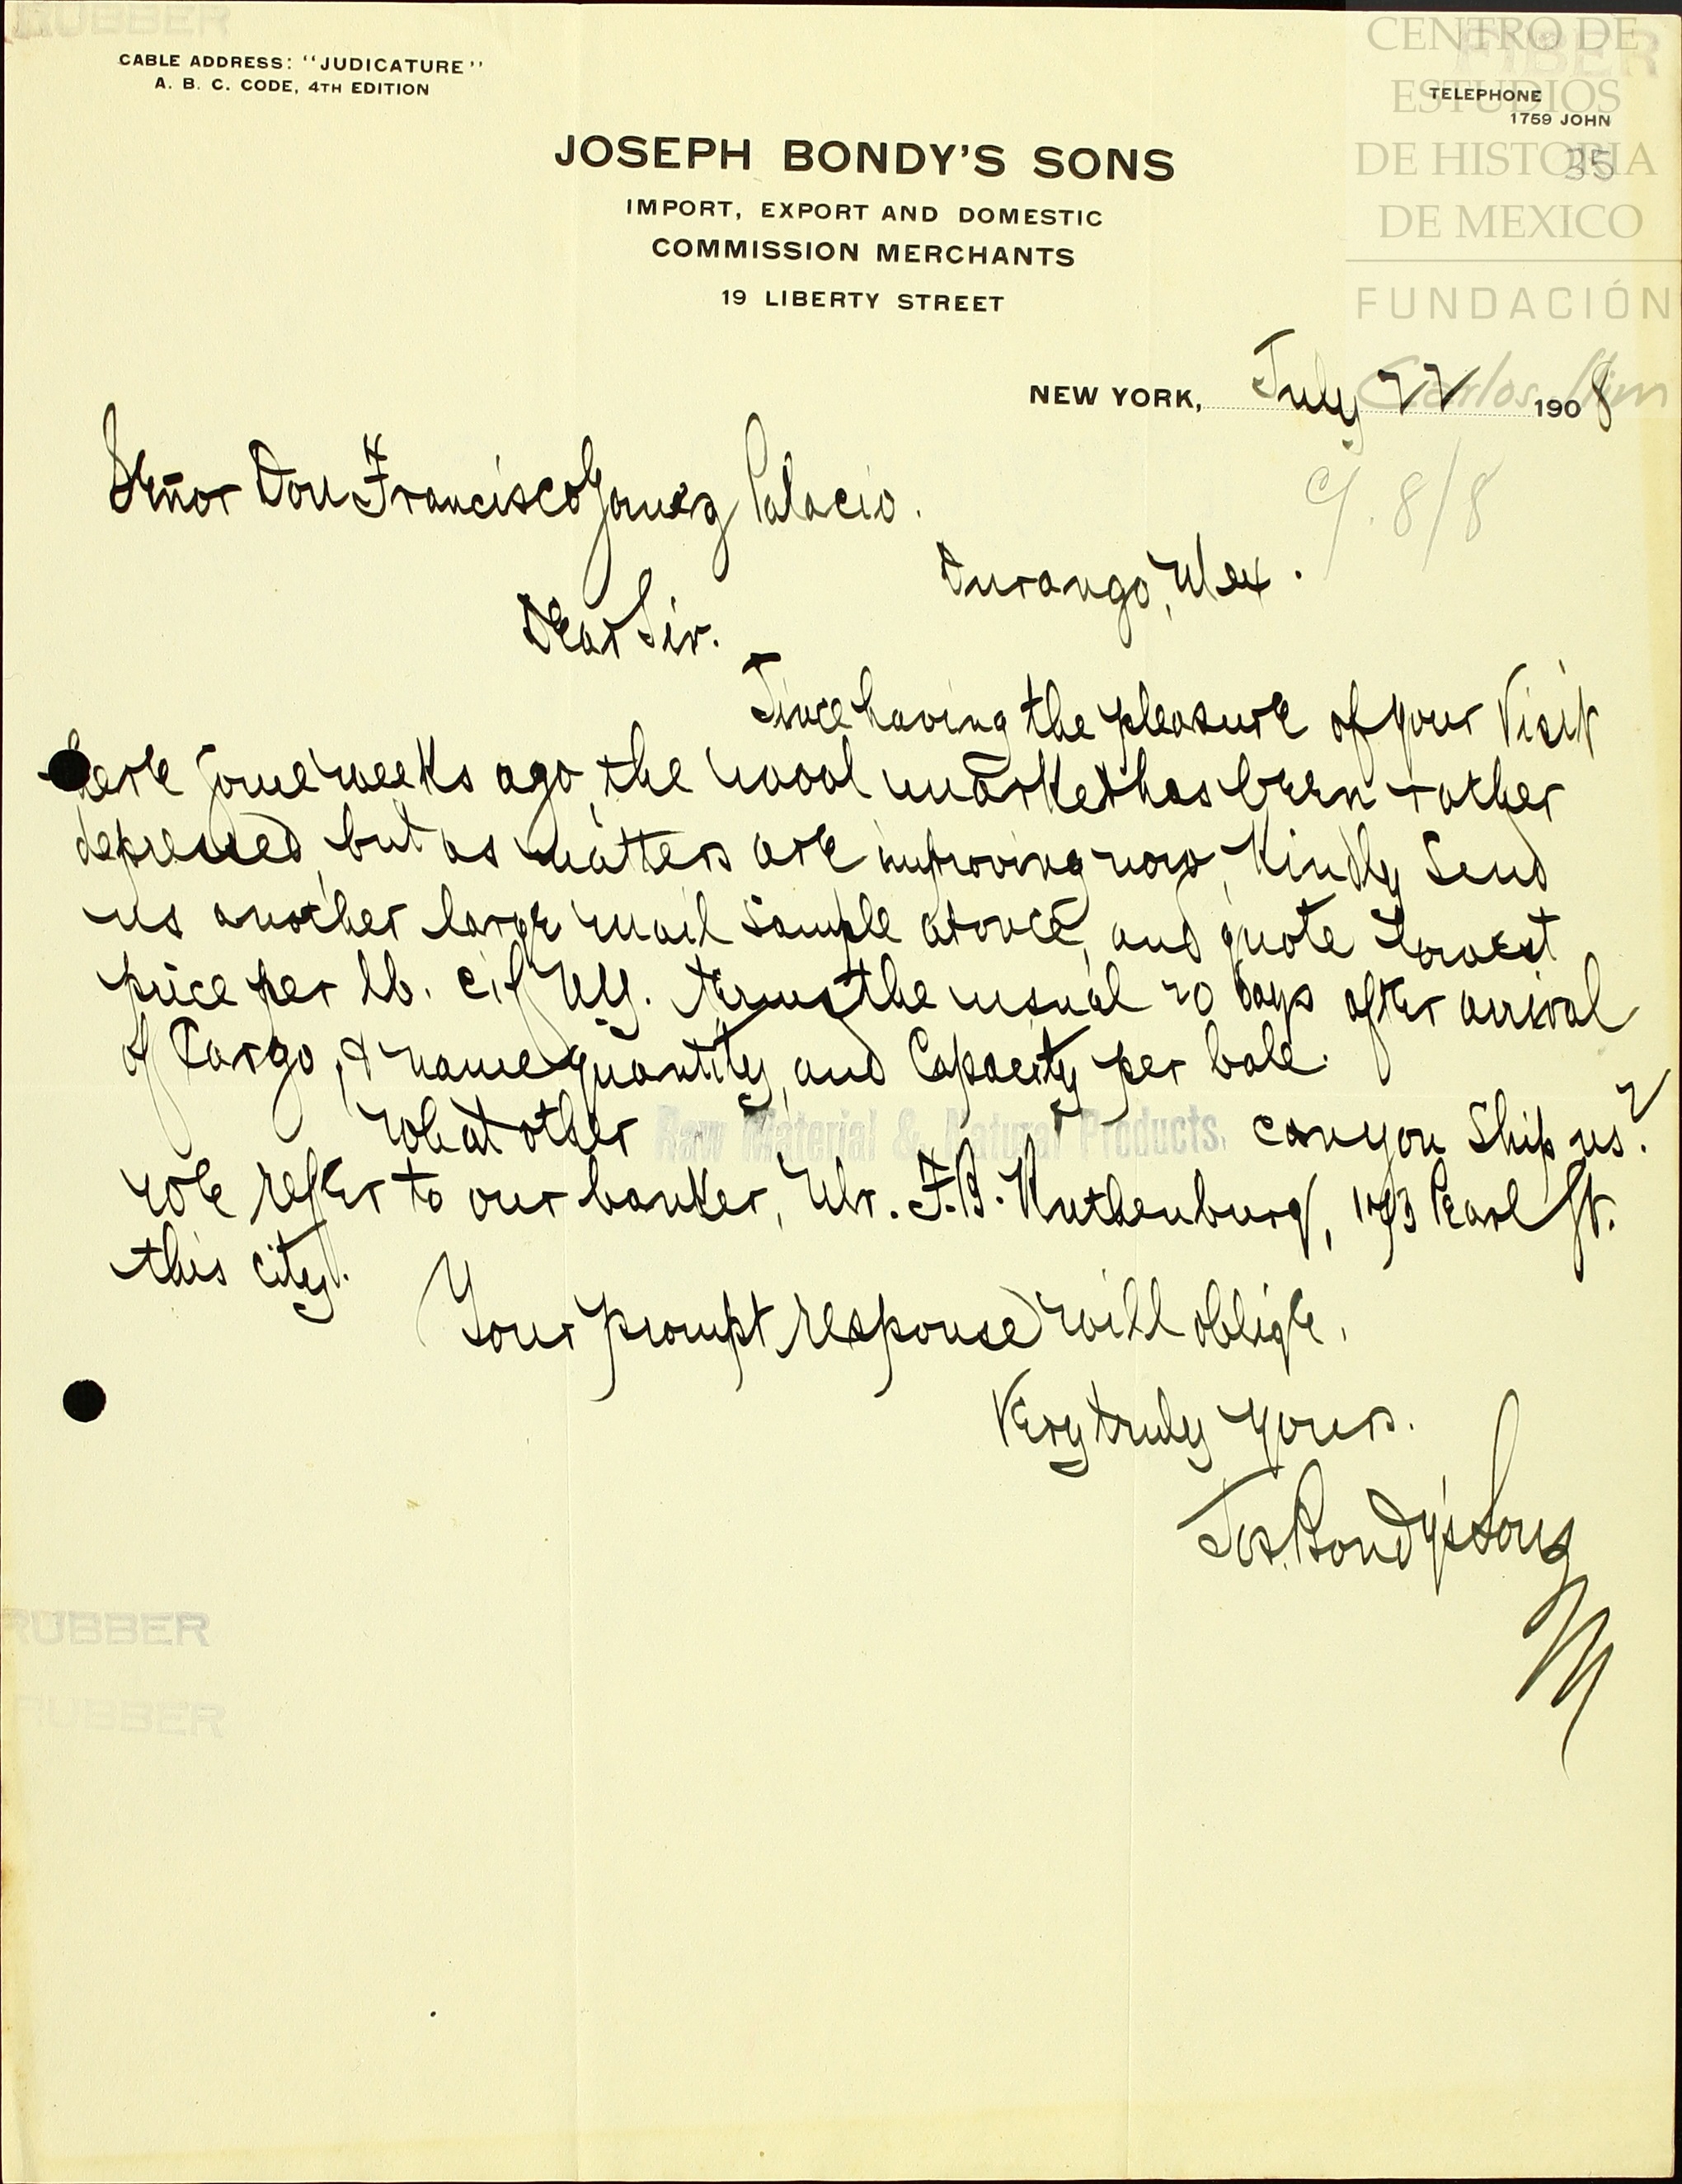 RUBBER
FIBER
CABLE ADDRESS: "JUDICATURE"
A. B. C. CODE, 4TH EDITION
TELEPHONE
1759 JOHN
35
CENTRO DE
ESTUDIOS
DE HISTORIA
DE MEXICO
FUNDACIÓN
Carlos Slim
JOSEPH BONDY'S SONS
IMPORT, EXPORT AND DOMESTIC
COMMISSION MERCHANTS
19 LIBERTY STREET
NEW YORK, July 22 1908
Señor Don Francisco Gomez Palacio.
C/. 8/8
Durango, Mex.
Dear Sir.
Since having the pleasure of your Visit
here some weeks ago, the wool market has been rather
depressed, but as matters are improving now, Kindly Send
us another large mail sample at once, and quote Lowest
price per lb. cif N.Y. terms the usual 20 days after arrival
of Cargo, & name quantity, and Capacity per bale.
What other Raw Material & Natural Products, can you Ship us?
We refer to our banker, Mr. F. B. Ruthenburg, 173 Pearl St.
this city.
Your prompt response will oblige,
Very truly yours.
Jos. Bondy's Sons
M
RUBBER
RUBBER